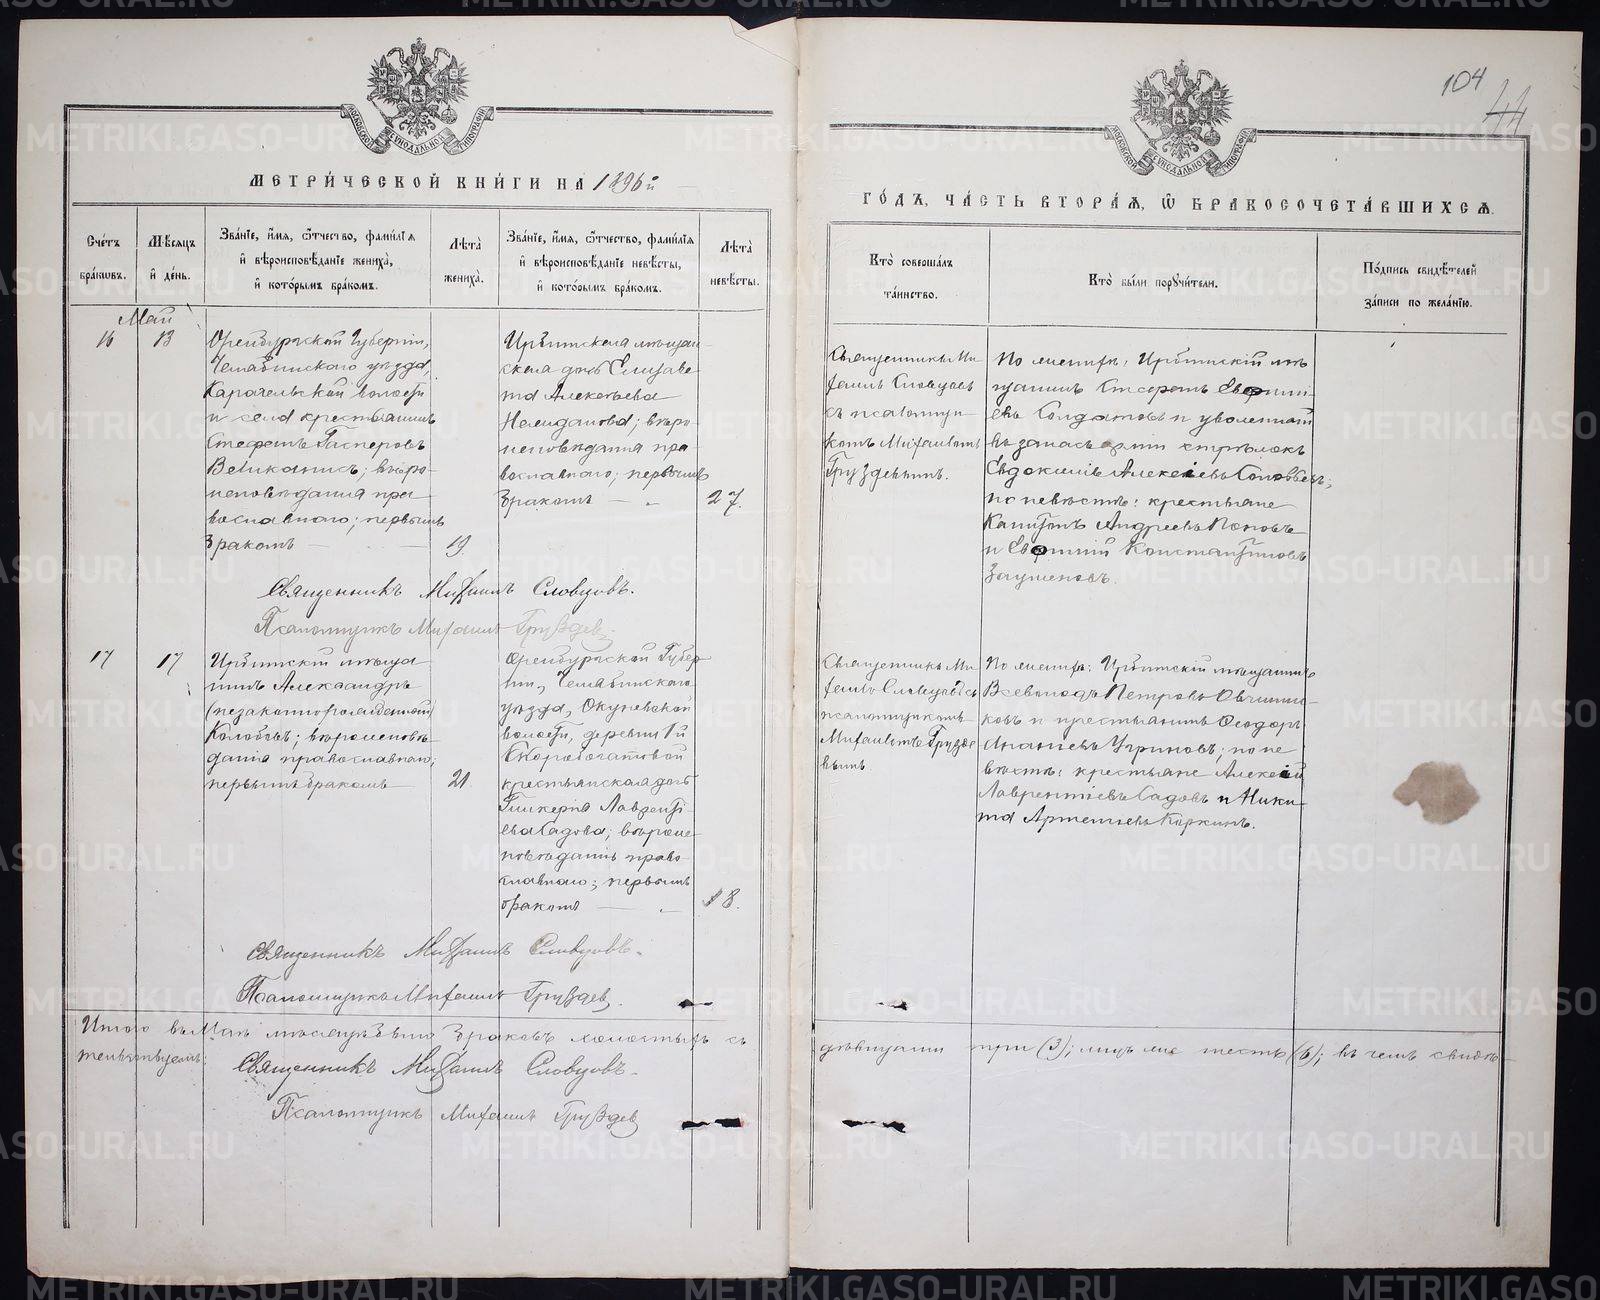 104
44
МЕТРИЧЕСКОЙ КНИГИ НА 1896 й
ГОДЪ, ЧАСТЬ ВТОРАЯ, Ѿ БРАКОСОЧЕТАВШИХСЯ.
Счетъ браковъ.
Мѣсяцъ и день.
Званіе, имя, ѿтчество, фамилія
и вѣроисповѣданіе жениха,
и которымъ бракомъ.
Лѣта жениха.
Званіе, имя, ѿтчество, фамилія
и вѣроисповѣданіе невѣсты,
и которымъ бракомъ.
Лѣта невѣсты.
Кто совершалъ
таинство.
Кто были поручители.
Подпись свидѣтелей
записи по желанію.
Май
16
13
Оренбургской Губерніи,
Челябинскаго уѣзда,
Карачельской волости
и села крестьянинъ
Стефанъ
вѣро-
исповѣданія пра-
вославнаго; первымъ
бракомъ
19.
Ирбитская мѣщан-
ская дочь Елизаве-
та Алексѣева
вѣро-
исповѣданія пра-
вославнаго; первымъ
бракомъ
27.
Священникъ Ми-
хаилъ Словцовъ
съ псаломщи-
комъ Михаиломъ
Груздевымъ.
По женихѣ: Ирбитскій мѣ-
щанинъ
Солдатовъ и уволенный
въ запасъ арміи стрѣлокъ
Евдокимъ Алексѣевъ
по невѣстѣ: крестьяне
Капитонъ Андреевъ Поповъ
и Евфимій Константиновъ
Священникъ Михаилъ Словцовъ.
Псаломщикъ Михаилъ Груздев
17
17
Ирбитскій мѣща-
нинъ Александръ
(незаконнорожденный)
вѣроисповѣ-
данія православнаго;
первымъ бракомъ
21.
Оренбургской Губер-
ніи, Челябинскаго
уѣзда, Окуневской
волости, деревни
крестьянская дочь
Гликерія Лавренті-
ева Садова; вѣроис-
повѣданія право-
славнаго; первымъ
бракомъ
18.
Священникъ Ми-
хаилъ Словцовъ съ
псаломщикомъ
Михаиломъ Груздѣ-
вымъ.
По женихѣ: Ирбитскій мѣщанинъ
Всеволодъ Петровъ Овчинни-
ковъ и крестьянинъ Ѳеодоръ
Ананьевъ Угриновъ; по не-
вѣстѣ: крестьяне Алексѣй
Лаврентіевъ Садовъ и Ники-
та Артемьевъ
Священникъ Михаилъ Словцовъ.
Псаломщикъ Михаилъ Груздев.
Итого въ Маѣ мѣсяцѣ было браковъ холостыхъ съ дѣвицами три (3); лицъ шесть (6); въ чемъ свидѣ-
тельствуемъ:
Священникъ Михаилъ Словцовъ.
Псаломщикъ Михаилъ Груздев
METRIKI.GASO-URAL.RU